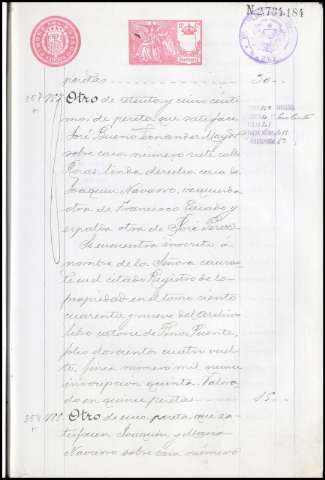 N. 2,734,184
pesetas 30
357 Otro de setenta y cinco centi
mos de peseta que satisface
José Bueno Fernandez Mayor
sobre casa número siete calle
Rosas, linda derecha casa de
Joaquin Navarro, izquierda
otra de Francisco Casado y
espalda otra de José
Se encuentra inscrito á
nombre de la Señora causan
te en el citado Registro de la
propiedad en el tomo ciento
cuarenta y nueve del Archivo
libro catorce de Pino Puente,
folio doscientos cuatro vuel
to, finca número mil nueve
inscripcion quinta. Valora
do en quince pesetas 15
358 Otro de cinco pesetas que sa
tisfacen Joaquin y Maria
Navarro sobre casa número